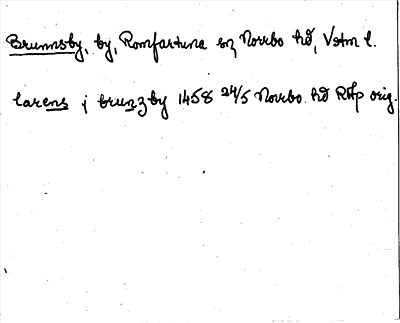 Brunnsby, by, Romfartuna sn, Norrbo hd, Vstm l.
larens j brunzby 1458 24/5 Norrbo hd RAp orig.